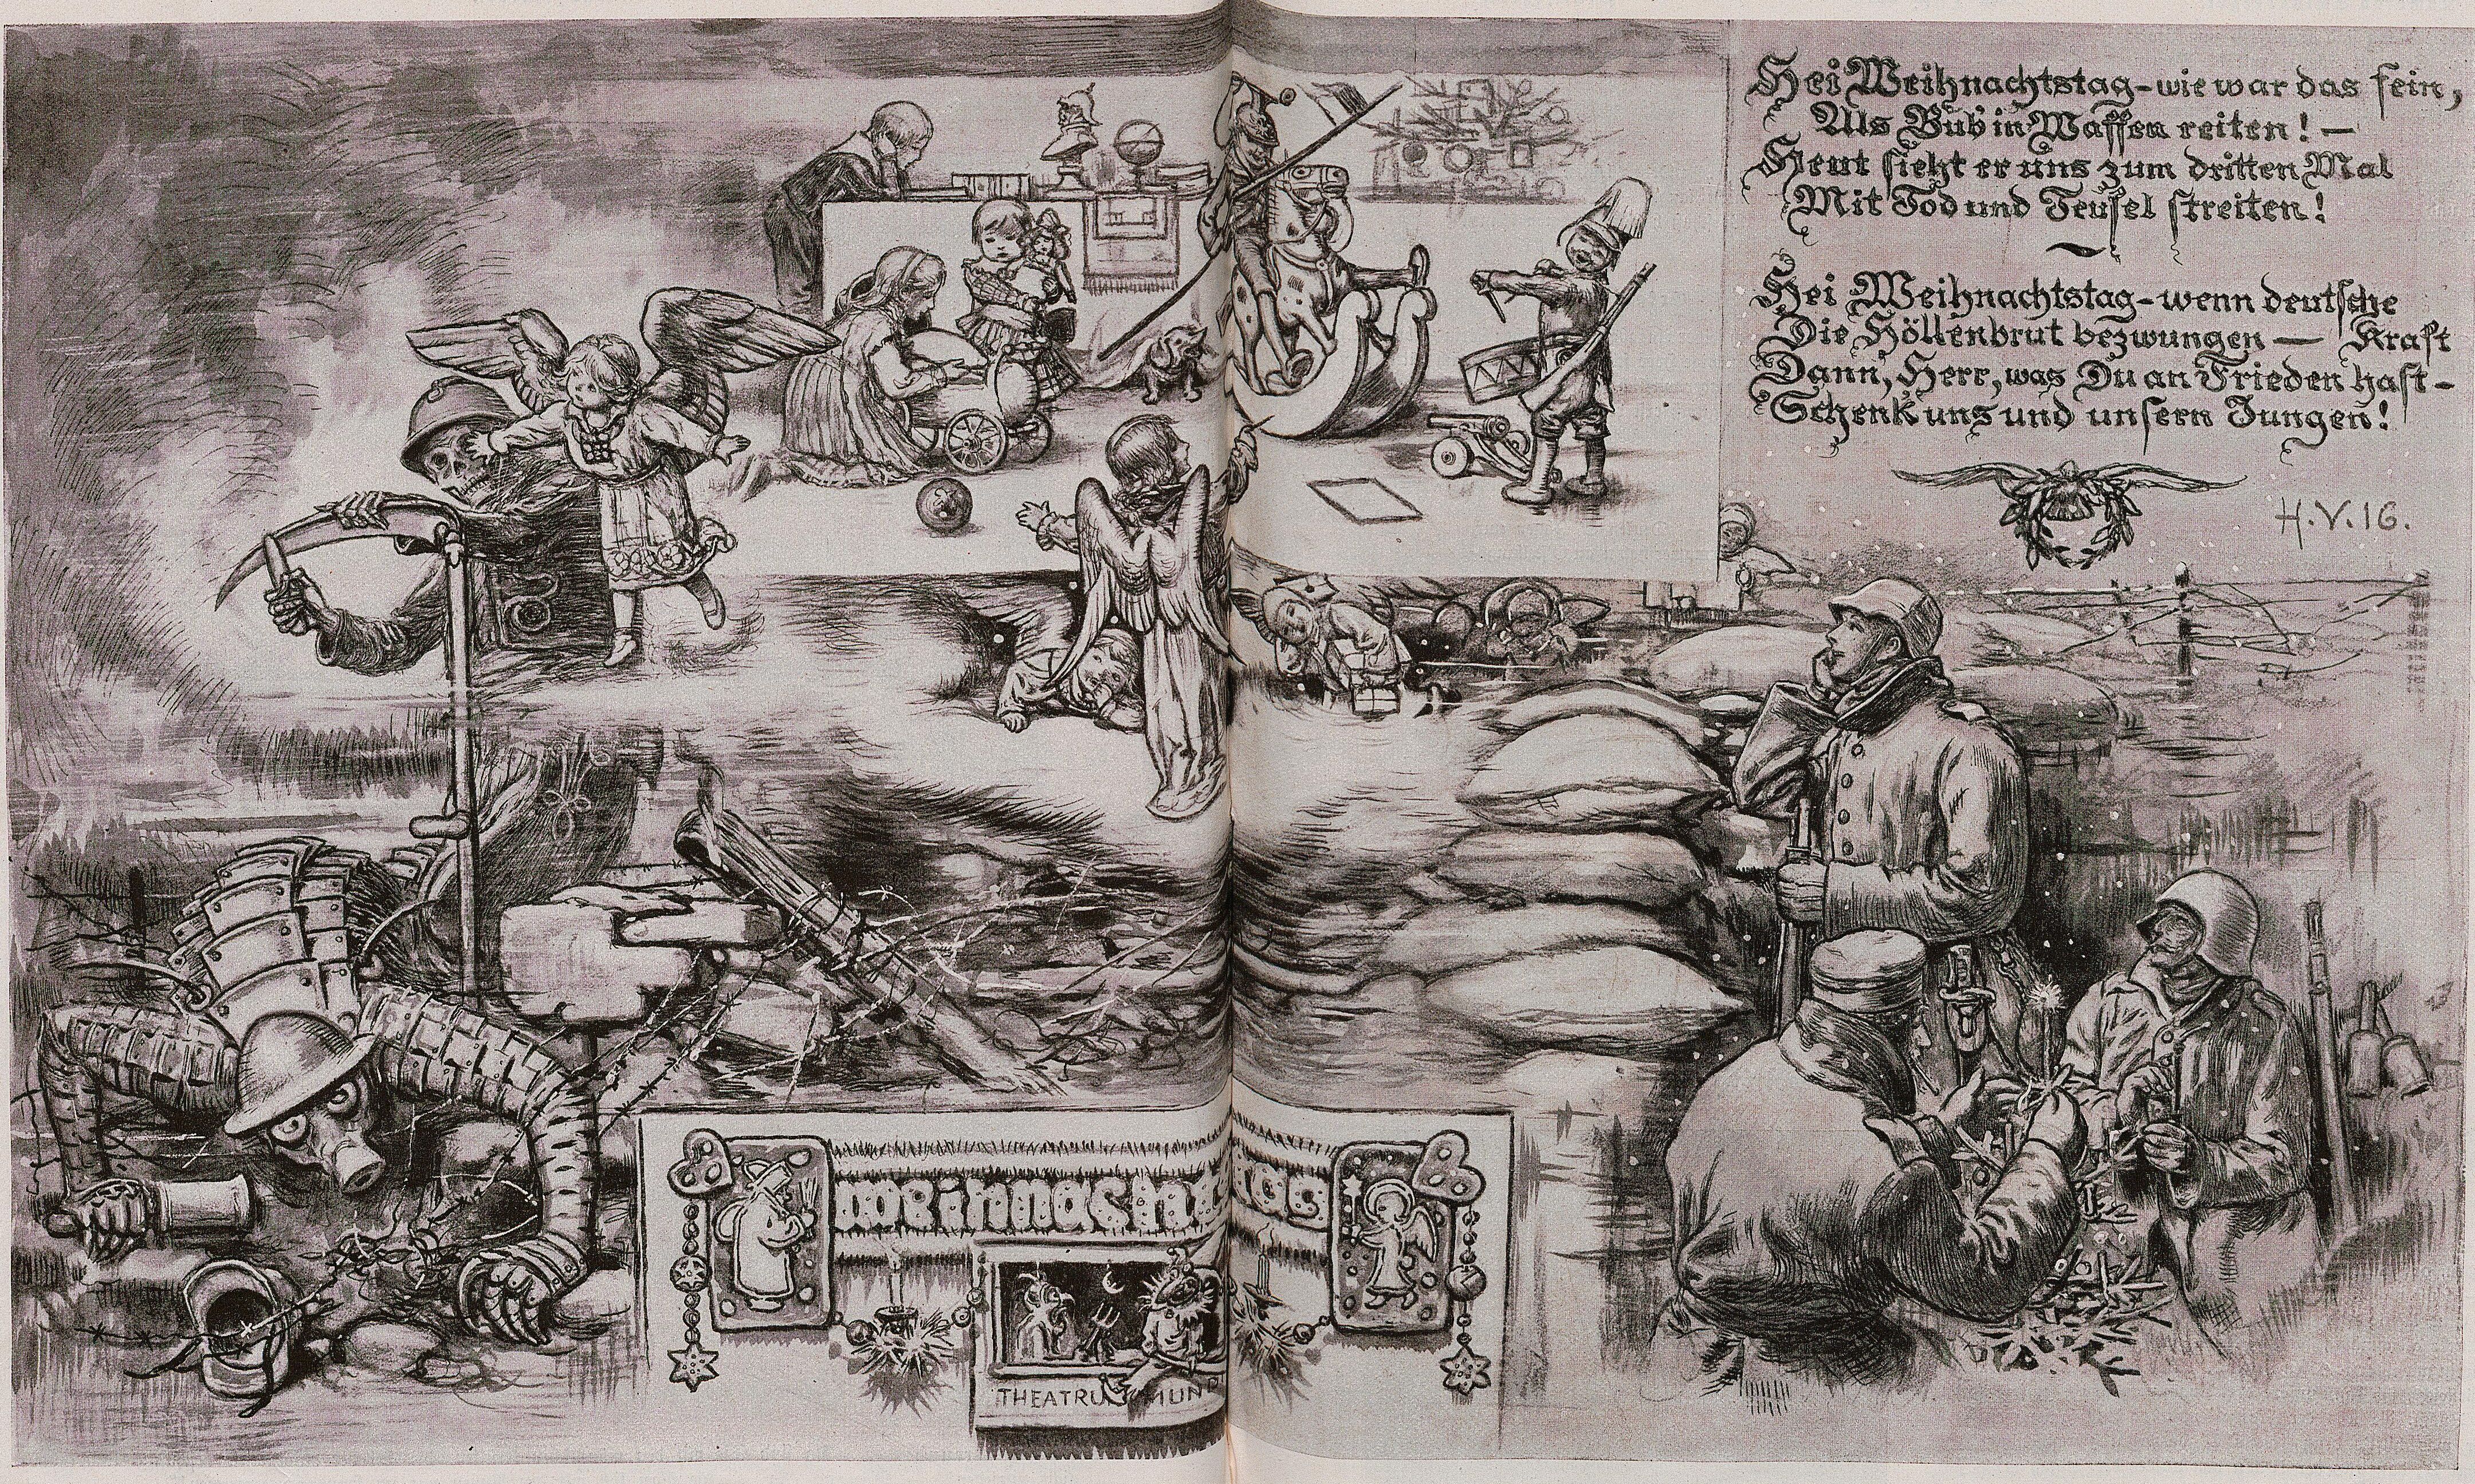 Hei Weihnachtstag - wie war das fein,
Als Bub in Waffen reiten! —
Heut sieht er uns zum dritten Mal
Mit Tod und Teufel streiten!
Hei Weihnachtstag - wenn deutsche
Die Höllenbrut bezwungen — Kraft
Dann, Herr, was Du an Frieden hast -
Schenk uns und unsern Jungen!
H.V.16.
Weihnachtstag
THEATRUM MUNDI